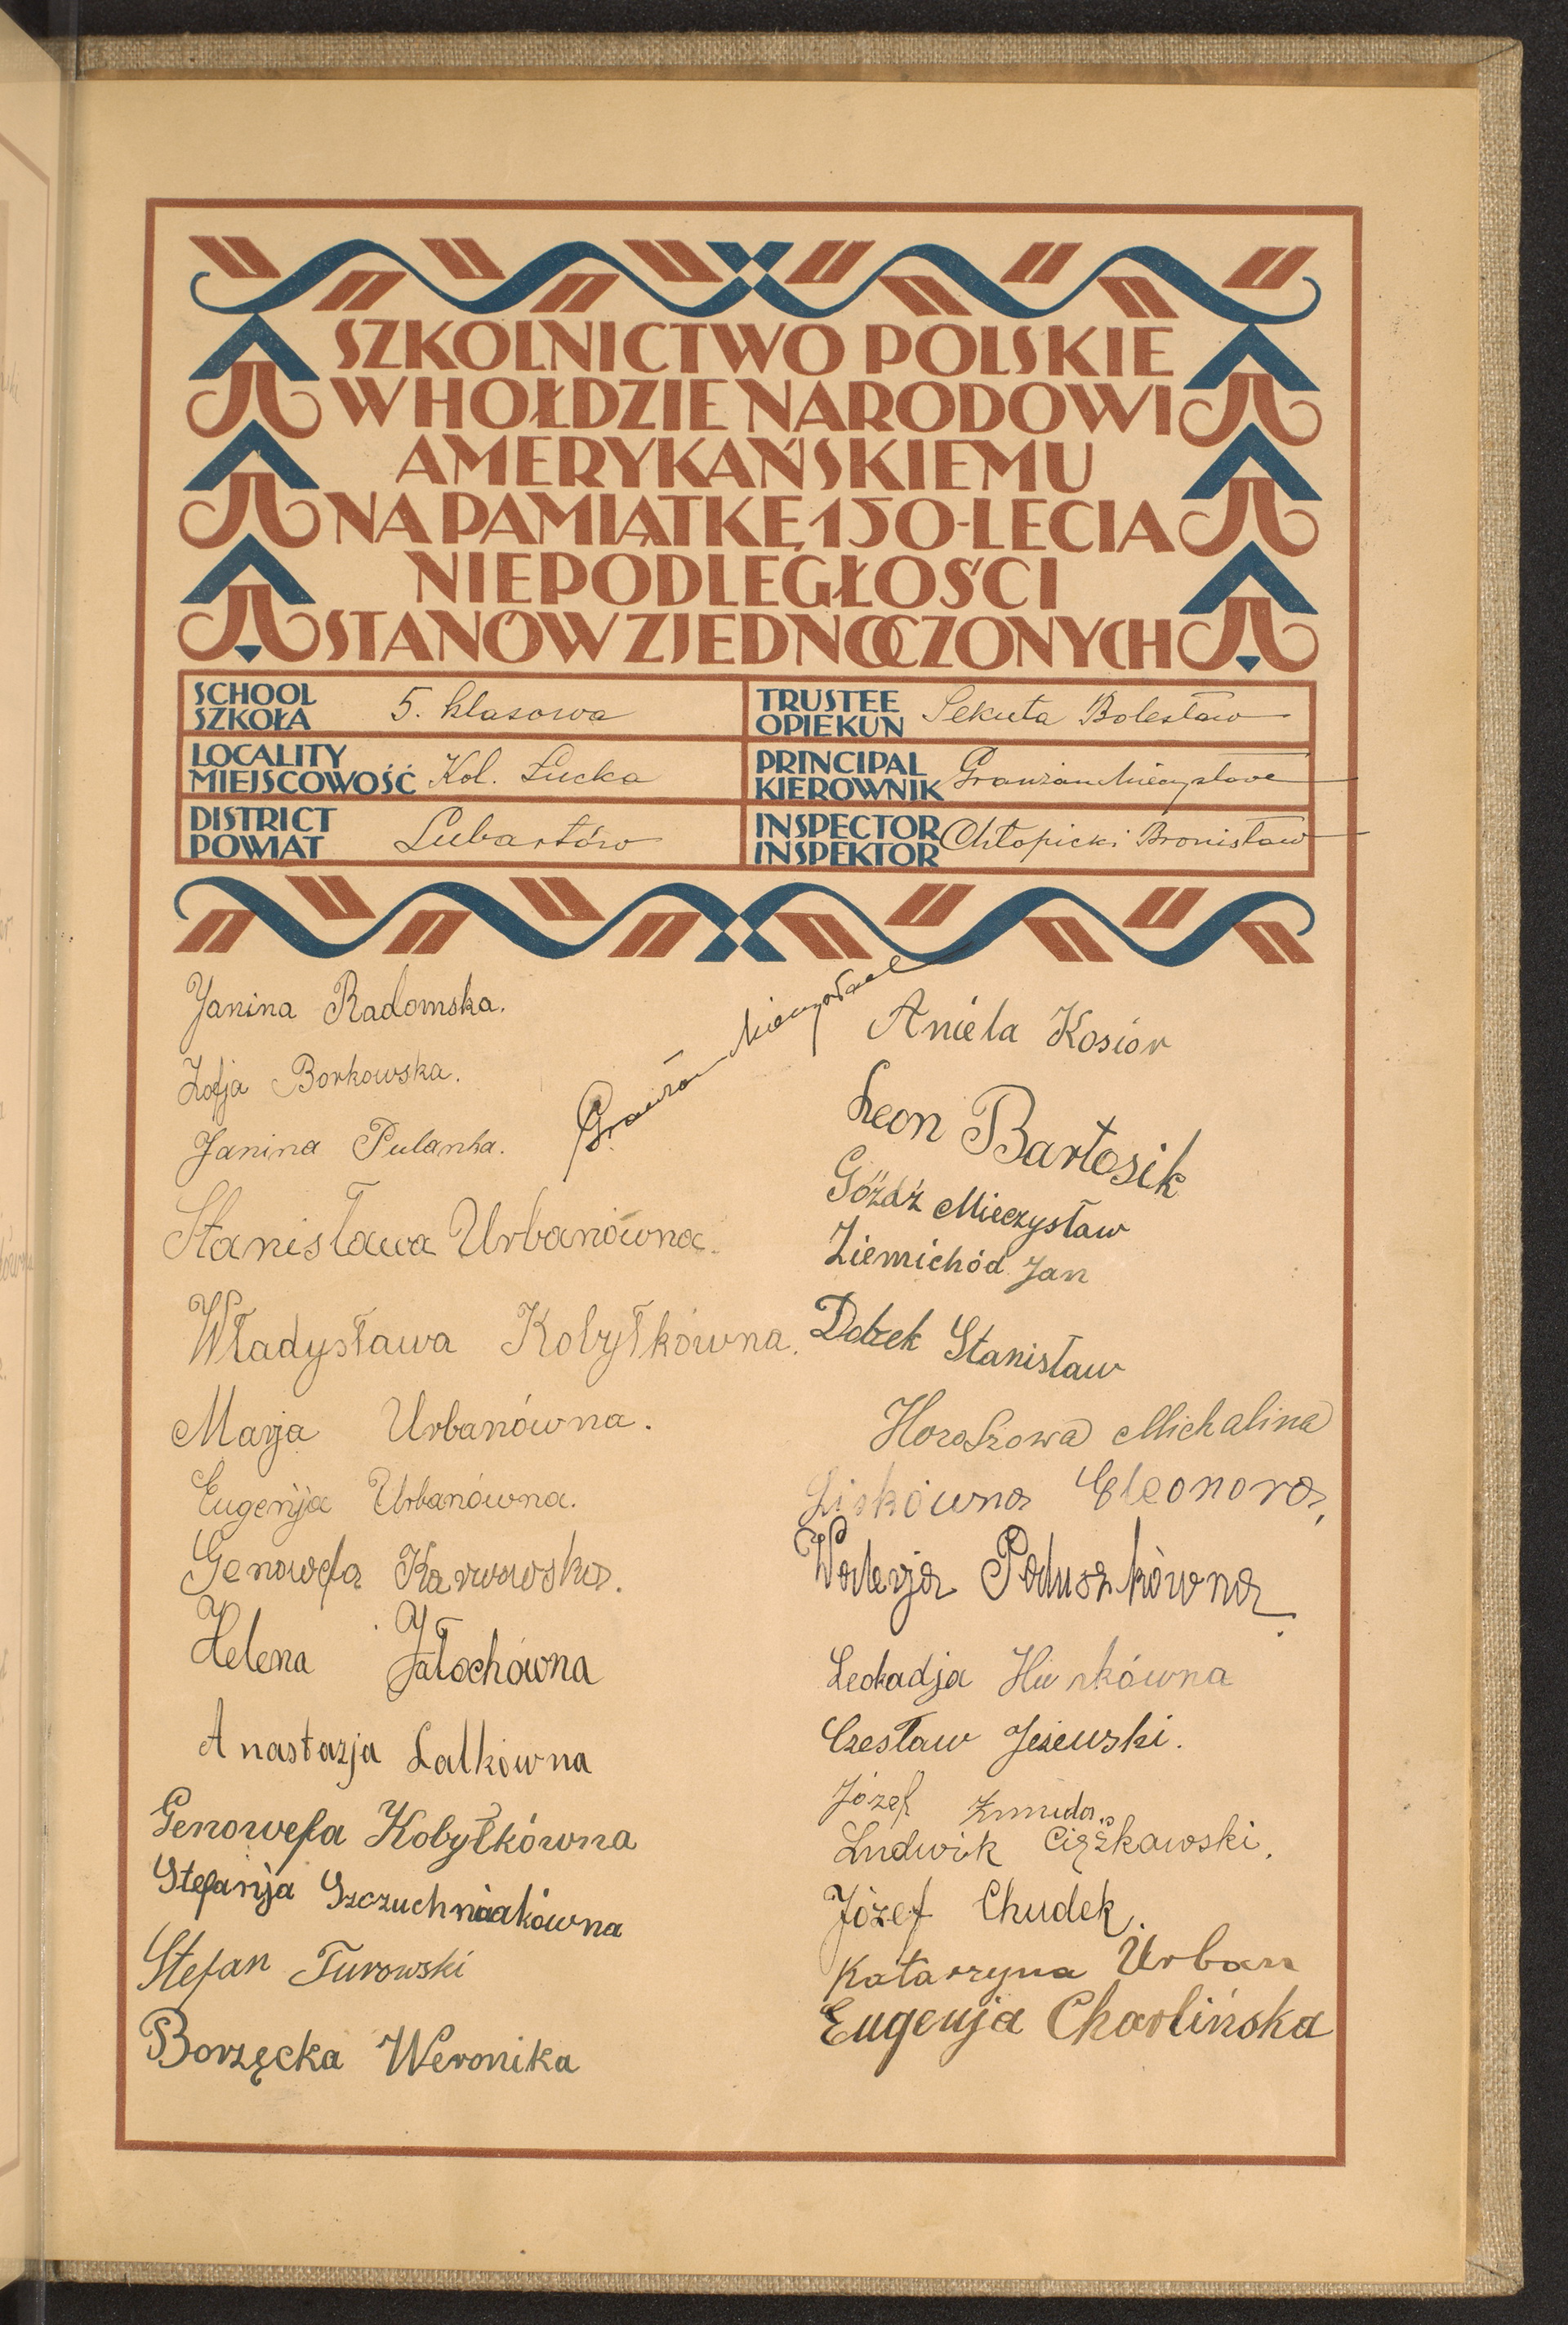 SZKOLNICTWO POLSKIE
W HOŁDZIE NARODOWI
AMERYKAŃSKIEMU
NA PAMIĄTKĘ 150-LECIA
NIEPODLEGŁOŚCI
STANÓW ZJEDNOCZONYCH
SCHOOL
SZKOŁA 5. klasowa
LOCALITY
MIEJSCOWOŚĆ Kol. Łucka
DISTRICT
POWIAT Lubartów
TRUSTEE
OPIEKUN Sekuta Bolesław
PRINCIPAL
KIEROWNIK
INSPECTOR
INSPEKTOR Chłopicki Bronisław
Janina Radomska.
Zofja Borkowska.
Janina Pulanka.
Stanisława Urbanówna.
Władysława Kobyłkówna.
Marja Urbanówna.
Eugenja Urbanówna.
Genowefa Karwowska.
Helena Jałochówna
Anastazja Lalkówna
Genowefa Kobyłkówna
Stefanja Szczuchniakówna
Stefan Turowski
Borzęcka Weronika
Aniela Kosior
Leon Bartosik
Góźdź Mieczysław
Ziemichód Jan
Dobek Stanisław
Michalina
Liskówna Eleonora,
Walerja Poduszkówna
Leokadja
Czesław Jeżewski.
Józef Żmuda.
Ludwik Ciężkowski.
Józef Chudek.
Katarzyna Urban
Eugenja Charlińska